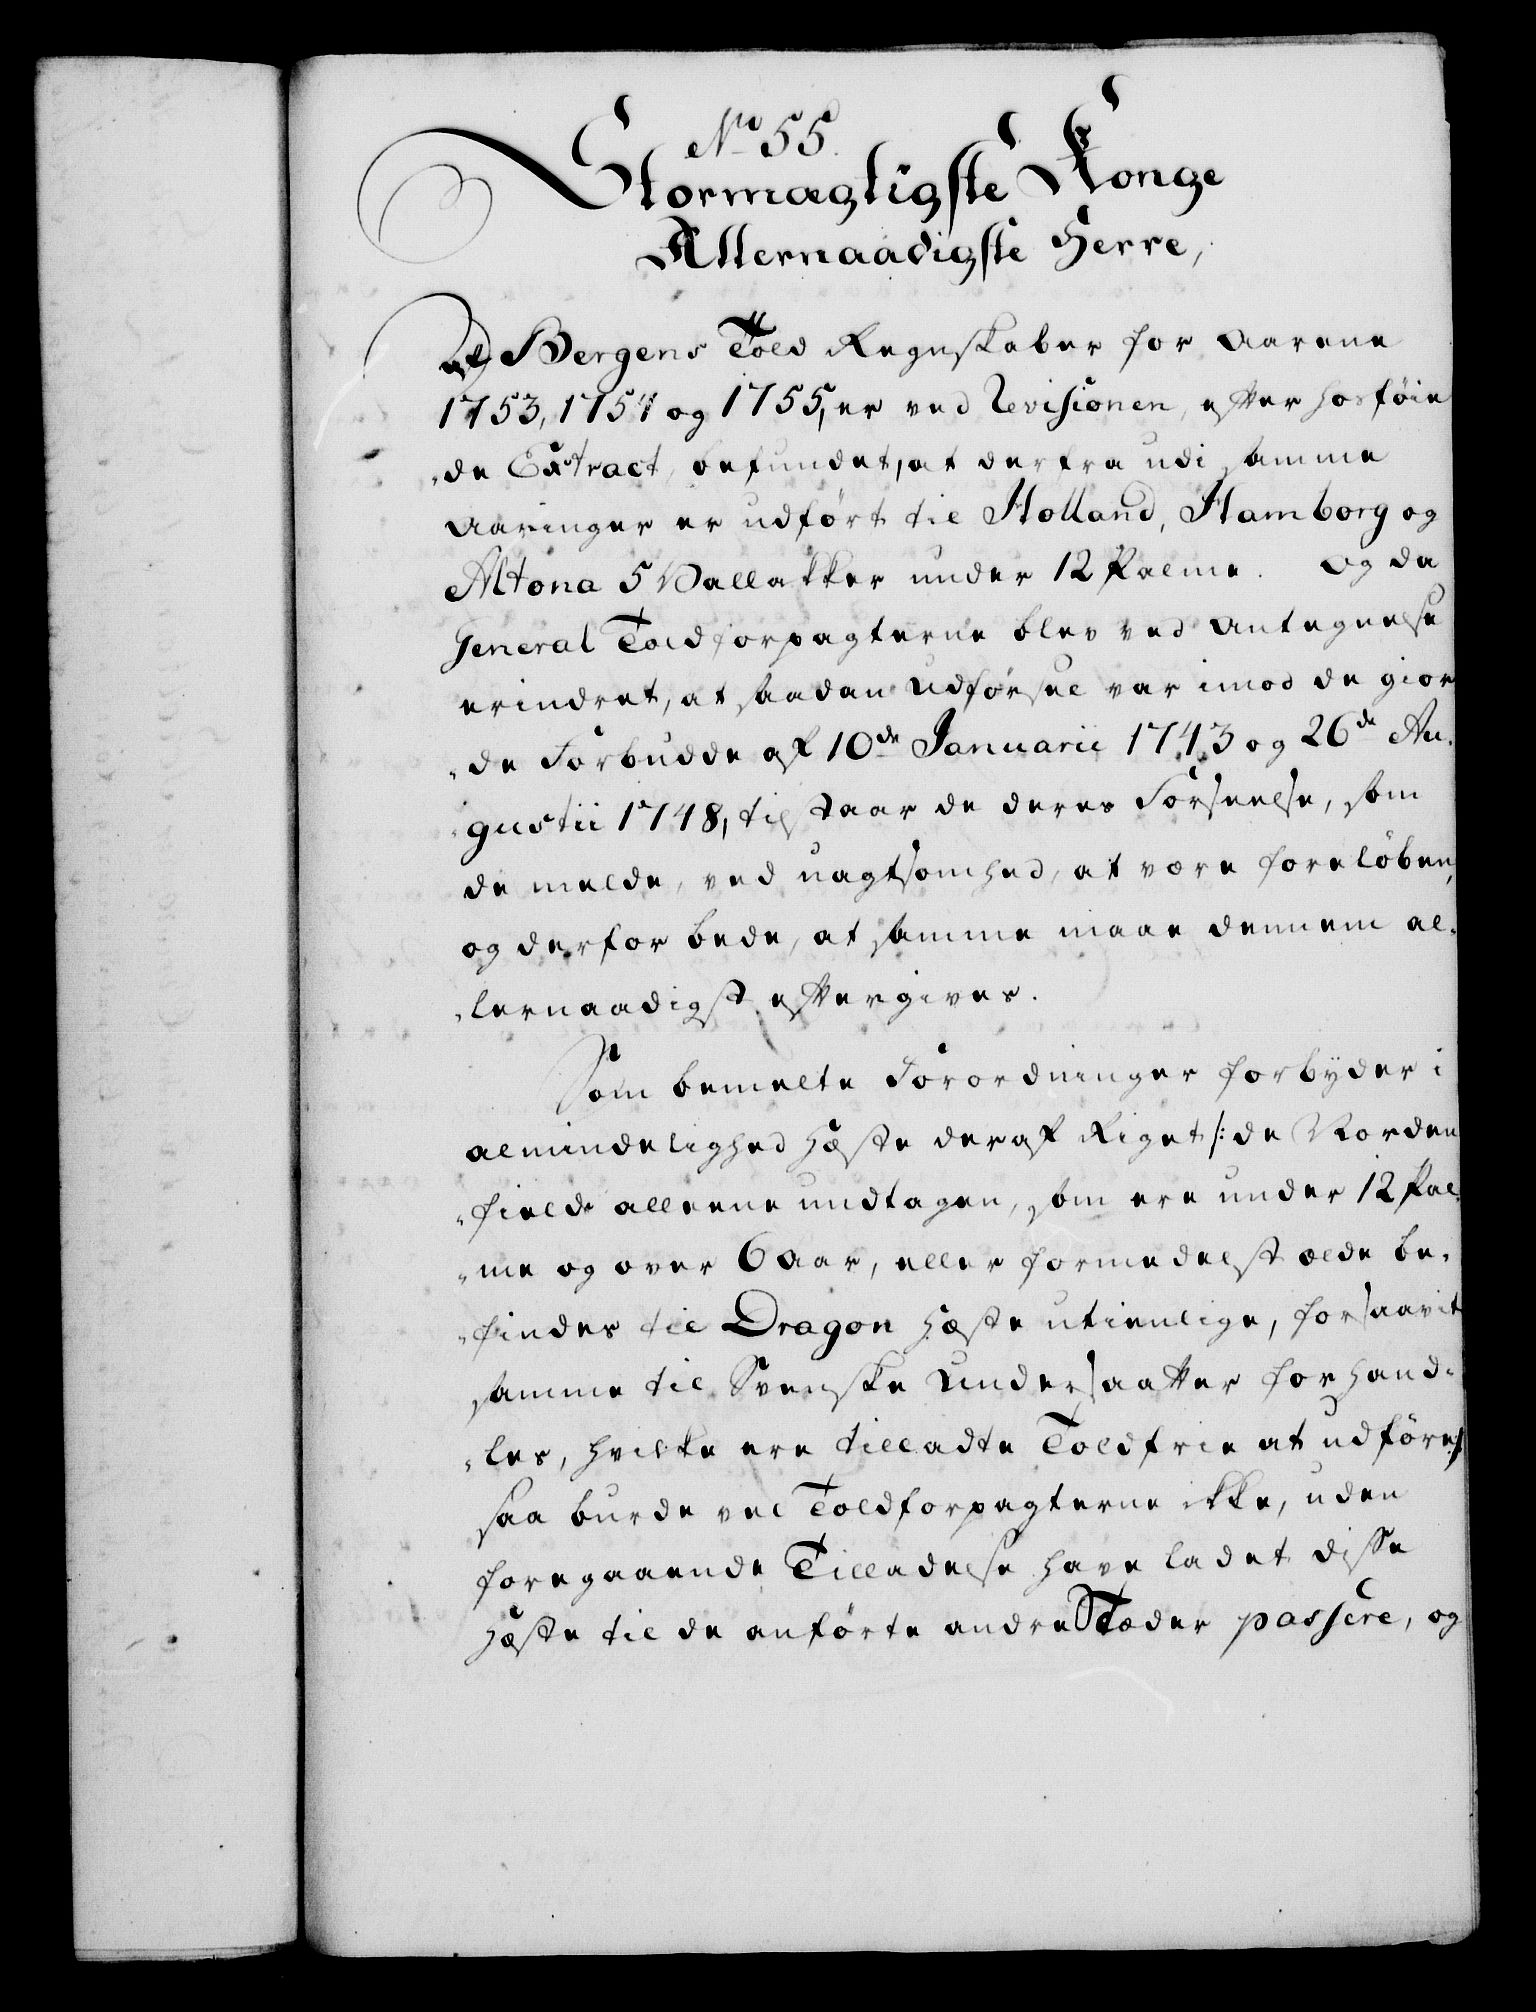 No 55.
Stormægtigste Konge
Allernaadigste Herre,
Af Bergens Told Regnskaber for Aarene
1753, 1754 og 1755, er ved Revisionen, efter hosføie
„de Extract, befundet, at derfra udi samme
Aaringer er udført til Holland, Hamborg og
Altona 5 Vallakker under 12 Palme. Og da
General Toldforpagterne blev ved Antegnelse
erindret, at saadan Udførsel var imod de gior
„de Forbudde af 10de Januarii 1743 og 26de Au„
„gustii 1748, tilstaar de deres Forseelse, som
de melde, ved uagtsomhed, at være foreløben,
og derfor bede, at samme maae dennem al„
„lernaadigst eftergives.
Som bemelte Forordninger forbyder i
almindelighed Hæste deraf Riget /: de Norden
„fields alleene undtagen, som ere under 12 Pal„
„me og over 6 Aar, eller formedelst ælde be„
„findes til Dragon Hæste utienlige, forsaavit
samme til Svenske Undersaatter forhand„
„les, hvilke ere tilladte Toldfrie at udføres
saa burde vel Toldforpagterne ikke, uden
foregaaende Tilladelse have ladet disse
Hæste til de anførte andre Stæder passere, og